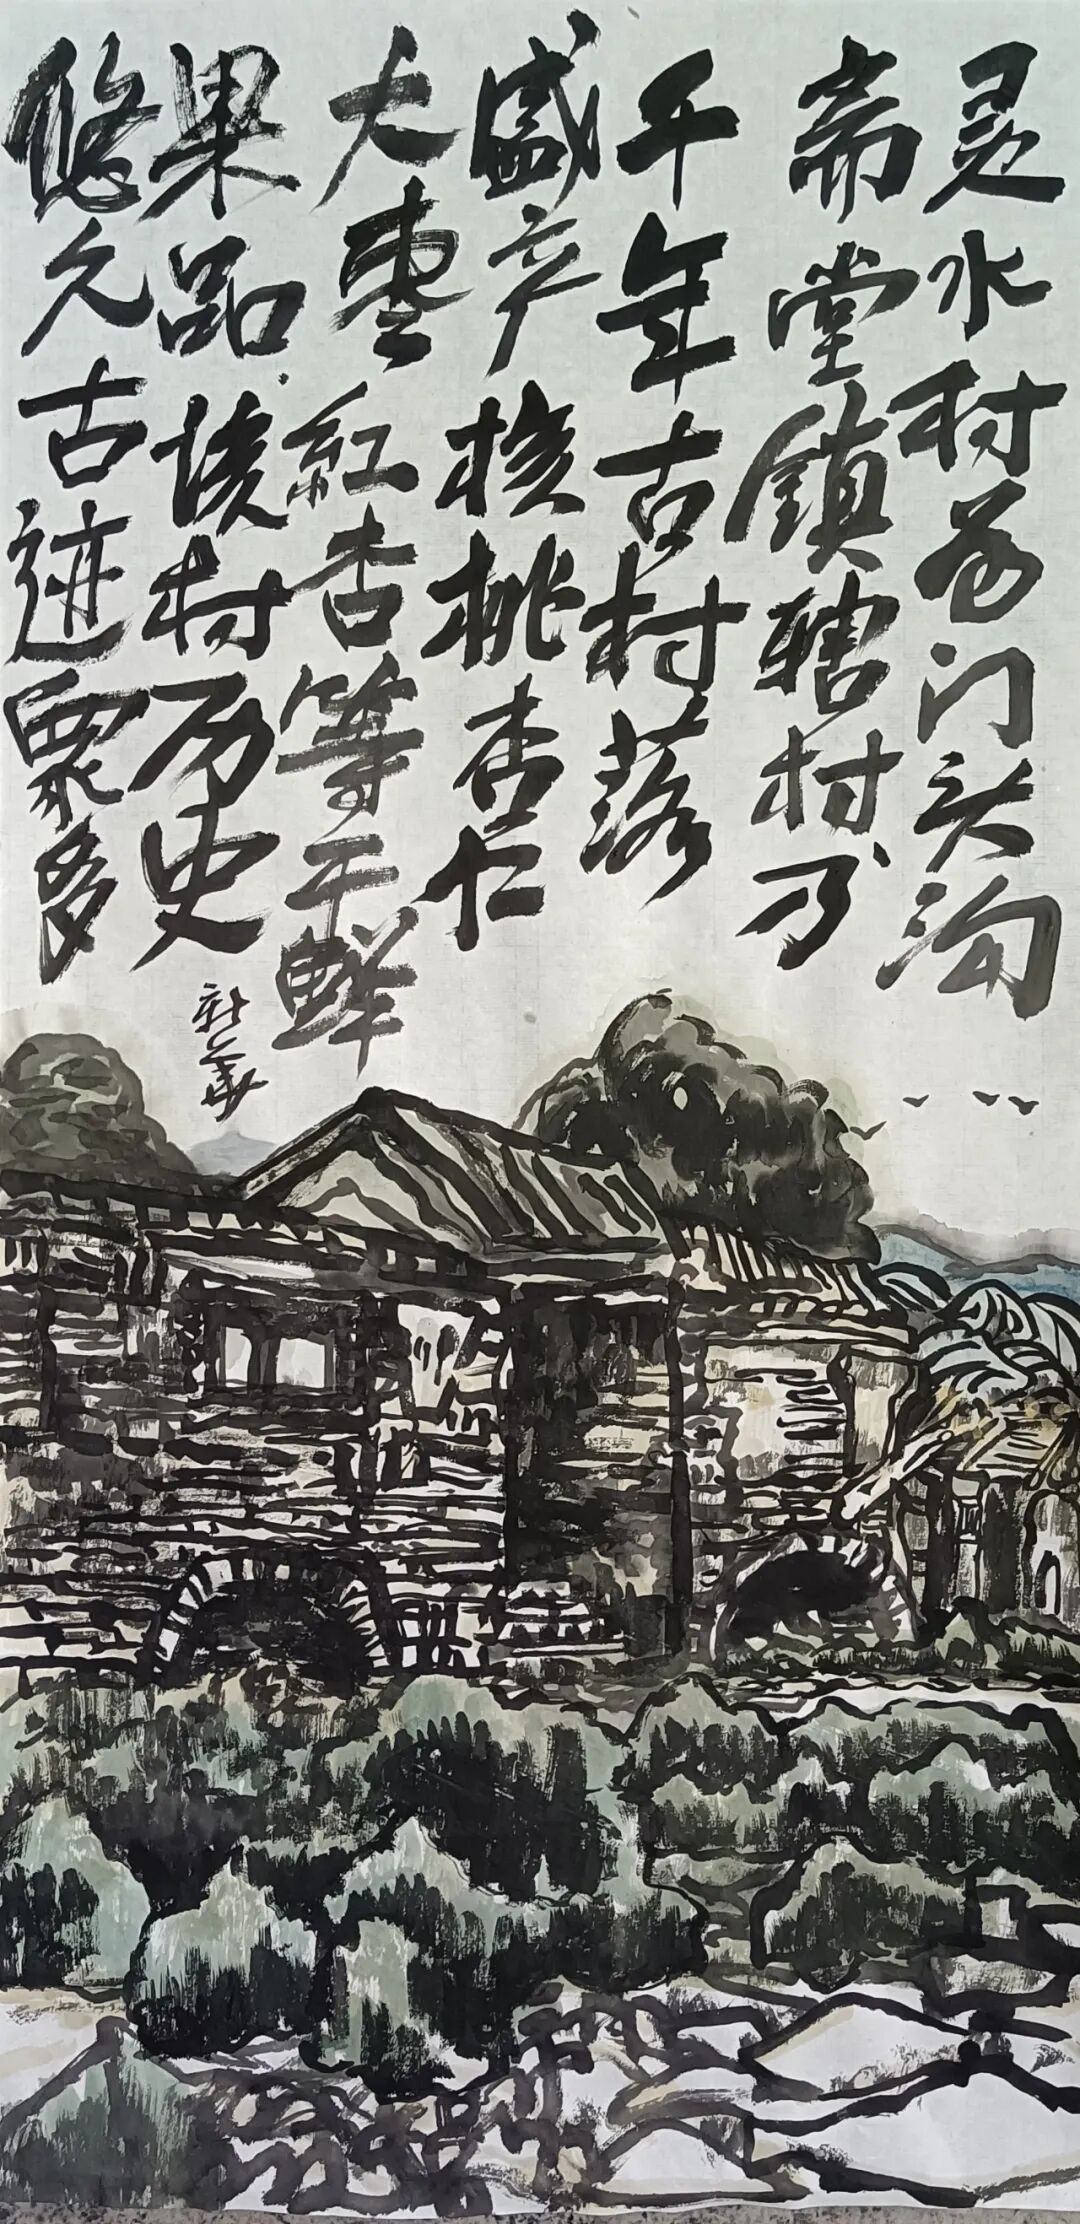 灵水村为门头沟
斋堂镇辖村乃
千年古村落
盛产核桃杏仁
大枣红杏等干鲜
果品该村历史
悠久古迹众多